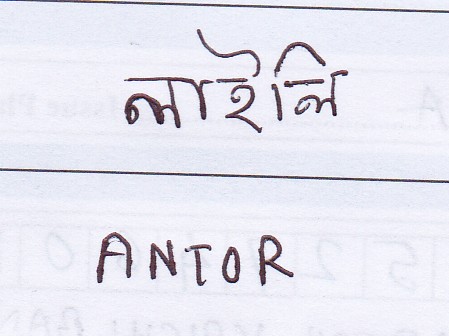 লাইলি
ANTOR